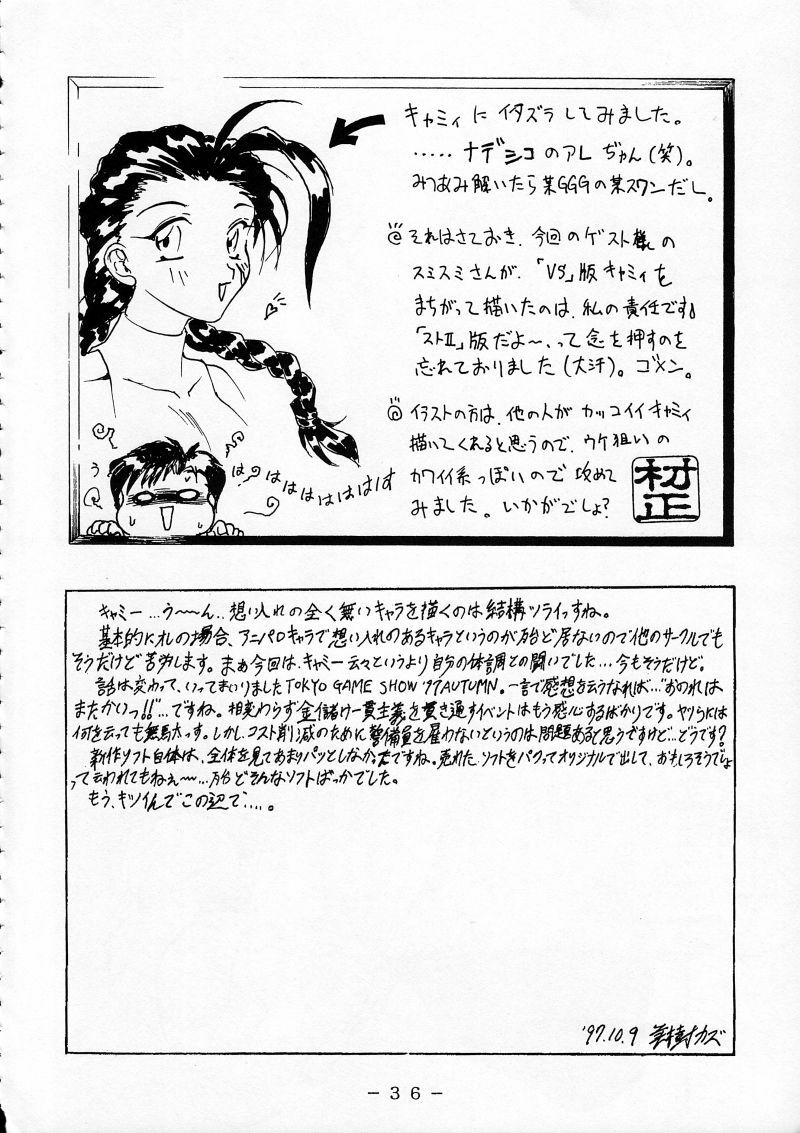 キャミィに イタズラ してみました。
‥‥‥ナデシコのアレ ぢゃん(笑)。
みつあみ解いたら某GGGの某スワンだし。
それはさておき、今回のゲスト様の
スミスミさんが、「VS」版キャミィを
まちがって描いたのは、私の責任です。
「ストⅡ」版だよ〜、って念を押すのを
忘れておりました(大汗)。ゴメン。
イラストの方は、他の人がカッコイイキャミィ
描いてくれると思うので、ウケ狙いの
カワイイ系っぽいので攻めて
みました。いかがでしょ?
村正
う
はっはははははは
キャミー…う〜〜ん‥想い入れの全く無いキャラを描くのは結構ツライっすね。
基本的にオレの場合、アニパロのキャラで想い入れのあるキャラというのが殆ど居ないので他のサークルでも
そうだけど苦労します。まぁ今回は、キャミー云々というより自分の体調との闘いでした…今もそうだけど。
話は変わって、いってまいりましたTOKYO GAME SHOW '97AUTUMN。一言で感想を云うなれば…"おのれは
またかいっ!!"…ですね。相変わらず金儲け一貫主義を貫き通すイベントはもう感心するばかりです。ヤツらには
何を云っても無駄っす。しかし、コスト削減のために警備員を雇わないというのは問題あると思うですけど…どうです?
新作ソフト自体は、全体を見てあまりパッとしなかったですね。売れたソフトをパクってオリジナルで出して、おもしろそうでしょ
って云われてもねぇ〜〜…殆どそんなソフトばっかでした。
もう、キツイんでこの辺で…。
'97.10.9 カズ
-36-